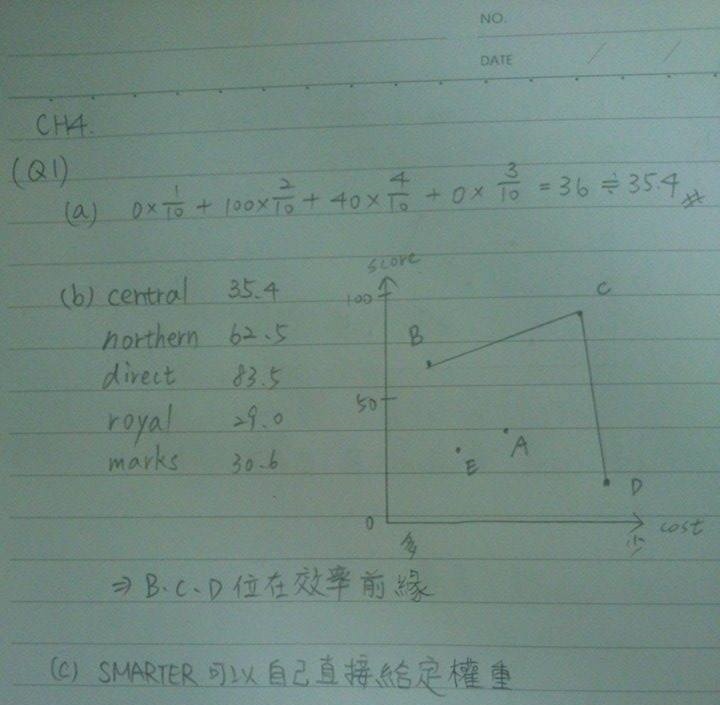 NO.
DATE / /
CH4.
(Q1)
(a) 0×1/10 + 100×2/10 + 40×4/10 + 0×3/10 = 36 ≑ 35.4 ※
(b) central 35.4
northern 62.5
direct 83.5
royal 29.0
marks 30.6
score
100
50
0
B
C
A
E
D
多
少
cost
⇒ B、C、D 位在效率前緣
(c) SMARTER 可以自己直接給定權重